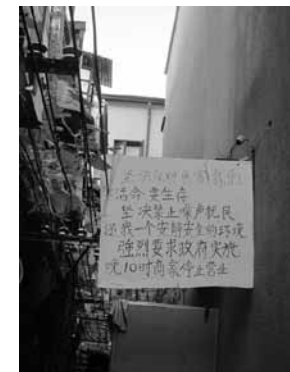 坚决反对
活命 要生存
坚决禁止噪声扰民
还我一个安静安全的环境
强烈要求政府实施
晚10时商家停止营业